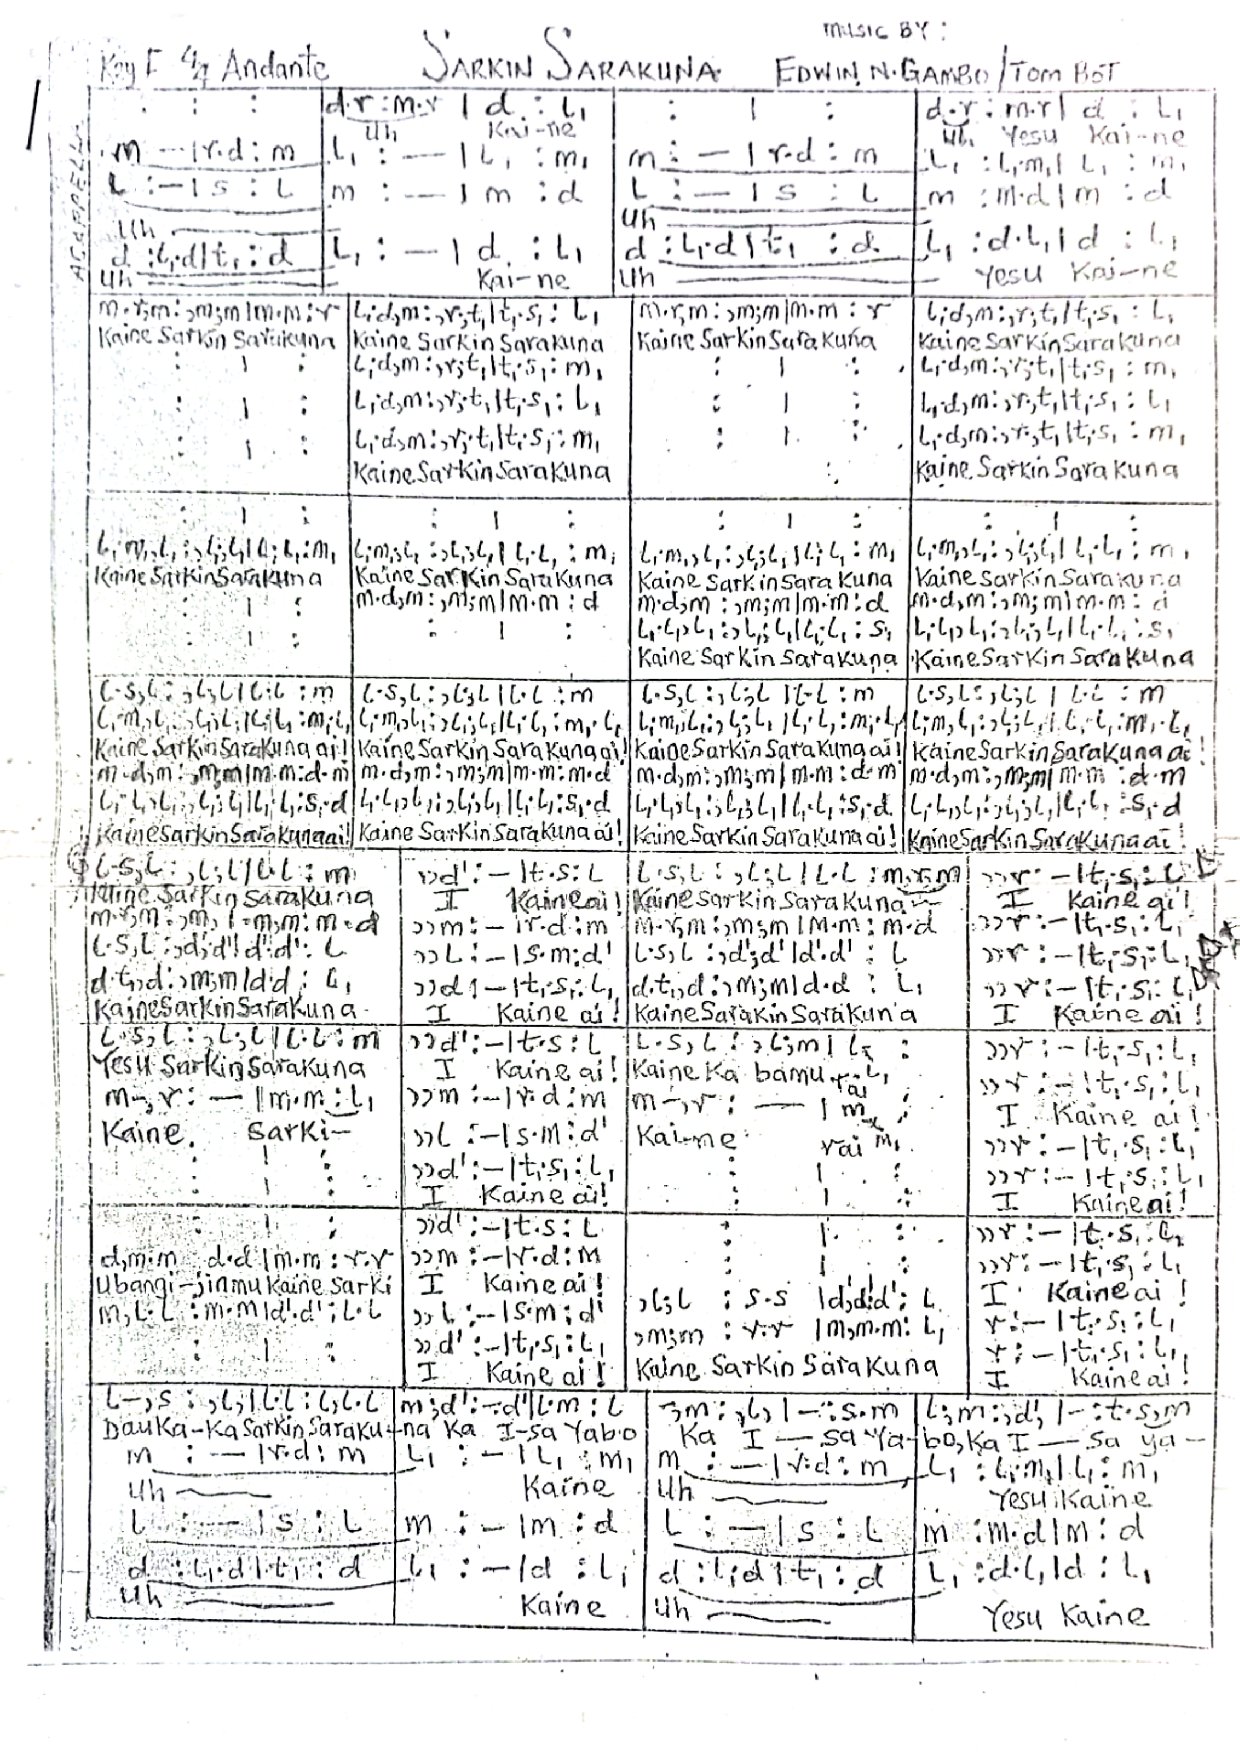 MUSIC BY:
Key F 4/4 Andante SARKIN SARAKUNA EDWIN N. GAMBO / TOM BOT
ACAPPELLA
: | : d.r : m.r | d : l₁ : | : d.r : m.r | d : l₁
Uh Kai-ne Uh Yesu Kai-ne
m — | r.d : m l₁ : — | l₁ : m₁ m : — | r.d : m l₁ : l₁.m₁ | l₁ : m₁
l : — | s : l m : — | m : d l : — | s : l m : m.d | m : d
Uh Uh
d : l₁.d | t₁ : d l₁ : — | d : l₁ d : l₁.d | t₁ : d l₁ : d.l₁ | d : l₁
Uh Kai-ne Uh Yesu Kai-ne
m.r,m : ,m;m | m.m : r l₁.d,m : ,r;t₁ | t₁.s₁ : l₁ m.r,m : ,m;m | m.m : r l₁.d,m : ,r;t₁ | t₁.s₁ : l₁
Kaine Sarkin Sarakuna Kaine Sarkin Sarakuna Kaine Sarkin Sarakuna Kaine Sarkin Sarakuna
: | : l₁.d,m : ,r;t₁ | t₁.s₁ : m₁ : | : l₁.d,m : ,r;t₁ | t₁.s₁ : m₁
: | : l₁.d,m : ,r;t₁ | t₁.s₁ : l₁ : | : l₁.d,m : ,r;t₁ | t₁.s₁ : l₁
: | : l₁.d,m : ,r;t₁ | t₁.s₁ : m₁ : | : l₁.d,m : ,r;t₁ | t₁.s₁ : m₁
Kaine Sarkin Sarakuna Kaine Sarkin Sarakuna
: | : : | : : | : : | :
l₁.m₁,l₁ : ,l₁;l₁ | l₁.l₁ : m₁ l₁.m₁,l₁ : ,l₁;l₁ | l₁.l₁ : m₁ l₁.m₁,l₁ : ,l₁;l₁ | l₁.l₁ : m₁ l₁.m₁,l₁ : ,l₁;l₁ | l₁.l₁ : m₁
Kaine Sarkin Sarakuna Kaine Sarkin Sarakuna Kaine Sarkin Sarakuna Kaine Sarkin Sarakuna
: | : m.d,m : ,m;m | m.m : d m.d,m : ,m;m | m.m : d m.d,m : ,m;m | m.m : d
: | : : | : l₁.l₁,l₁ : ,l₁;l₁ | l₁.l₁ : s₁ l₁.l₁,l₁ : ,l₁;l₁ | l₁.l₁ : s₁
Kaine Sarkin Sarakuna Kaine Sarkin Sarakuna
l.s,l : ,l;l | l.l : m l.s,l : ,l;l | l.l : m l.s,l : ,l;l | l.l : m l.s,l : ,l;l | l.l : m
l₁.m₁,l₁ : ,l₁;l₁ | l₁.l₁ : m₁.l₁ l₁.m₁,l₁ : ,l₁;l₁ | l₁.l₁ : m₁.l₁ l₁.m₁,l₁ : ,l₁;l₁ | l₁.l₁ : m₁.l₁ l₁.m₁,l₁ : ,l₁;l₁ | l₁.l₁ : m₁.l₁
Kaine Sarkin Sarakuna ai! Kaine Sarkin Sarakuna ai! Kaine Sarkin Sarakuna ai! Kaine Sarkin Sarakuna ai!
m.d,m : ,m;m | m.m : d.m m.d,m : ,m;m | m.m : m.d m.d,m : ,m;m | m.m : d.m m.d,m : ,m;m | m.m : d.m
l₁.l₁,l₁ : ,l₁;l₁ | l₁.l₁ : s₁.d l₁.l₁,l₁ : ,l₁;l₁ | l₁.l₁ : s₁.d l₁.l₁,l₁ : ,l₁;l₁ | l₁.l₁ : s₁.d l₁.l₁,l₁ : ,l₁;l₁ | l₁.l₁ : s₁.d
Kaine Sarkin Sarakuna ai! Kaine Sarkin Sarakuna ai! Kaine Sarkin Sarakuna ai! Kaine Sarkin Sarakuna ai!
l.s,l : ,l;l | l.l : m ,,d' : — | t.s : l l.s,l : ,l;l | l.l : m,r,m ,,r : — | t₁.s₁ : l
Kaine Sarkin Sarakuna I Kaine ai! Kaine Sarkin Sarakuna — I Kaine ai!
m.r,m : ,m, | -m,m : m.d ,,m : — | r.d : m m.r,m : ,m;m | m.m : m.d ,,r : — | t₁.s₁ : l₁
l.s,l : ,d;d' | d'.d' : l ,,l : — | s.m : d' l.s,l : ,d';d' | d'.d' : l ,,r : — | t₁.s₁ : l₁
d.t₁,d : ,m;m | d.d : l₁ ,,d : — | t₁.s₁ : l₁ d.t₁,d : ,m;m | d.d : l₁ ,,r : — | t₁.s₁ : l₁
Kaine Sarkin Sarakuna I Kaine ai! Kaine Sarakin Sarakuna I Kaine ai!
l.s,l : ,l;l | l.l : m ,,d' : — | t.s : l l.s,l : ,l;m | l : ,,r : — | t₁.s₁ : l₁
Yesu Sarkin Sarakuna I Kaine ai! Kaine Ka bamu rai ,,r : — | t₁.s₁ : l₁
m-,r : — | m.m : l₁ ,,m : — | r.d : m m-,r : — | m : I Kaine ai!
Kaine Sarki— ,,l : — | s.m : d' Kai-ne rai ,,r : — | t₁.s₁ : l₁
: | : ,,d' : — | t₁.s₁ : l₁ : | : ,,r : — | t₁.s₁ : l₁
: | : I Kaine ai! : | : I Kaine ai!
: | : ,,d' : — | t.s : l : | : ,,r : — | t₁.s₁ : l₁
d,m:m d.d | m.m : r.r ,,m : — | r.d : m : | : ,,r : — | t₁.s₁ : l₁
Ubangi-jinmu Kaine Sarki I Kaine ai! I Kaine ai!
m,l.l : m.m | d'.d' : l.l ,,l : — | s.m : d' ,l;l : s.s | d',d'.d' : l r : — | t₁.s₁ : l₁
: | : ,,d' : — | t₁.s₁ : l₁ ,m;m : r.r | m,m.m : l₁ r : — | t₁.s₁ : l₁
I Kaine ai! Kaine Sarkin Sarakuna I Kaine ai!
l-,s : ,l; | l.l : l,l.l m;d' : -d' | l.m : l -;m : ,l, | - : s.m l;m : ,d', | - : t.s,m
Dau Ka-Ka Sarkin Saraku-na Ka I-sa Yabo Ka I — sa Ya-bo, Ka I — sa ya—
m : — | r.d : m l₁ : — | l₁ : m₁ m : — | r.d : m l₁ : l₁.m₁ | l₁ : m₁
Uh Kaine Uh Yesu Kaine
l : — | s : l m : — | m : d l : — | s : l m : m.d | m : d
d : l₁.d | t₁ : d l₁ : — | d : l₁ d : l₁.d | t₁ : d l₁ : d.l₁ | d : l₁
Uh Kaine Uh Yesu Kaine